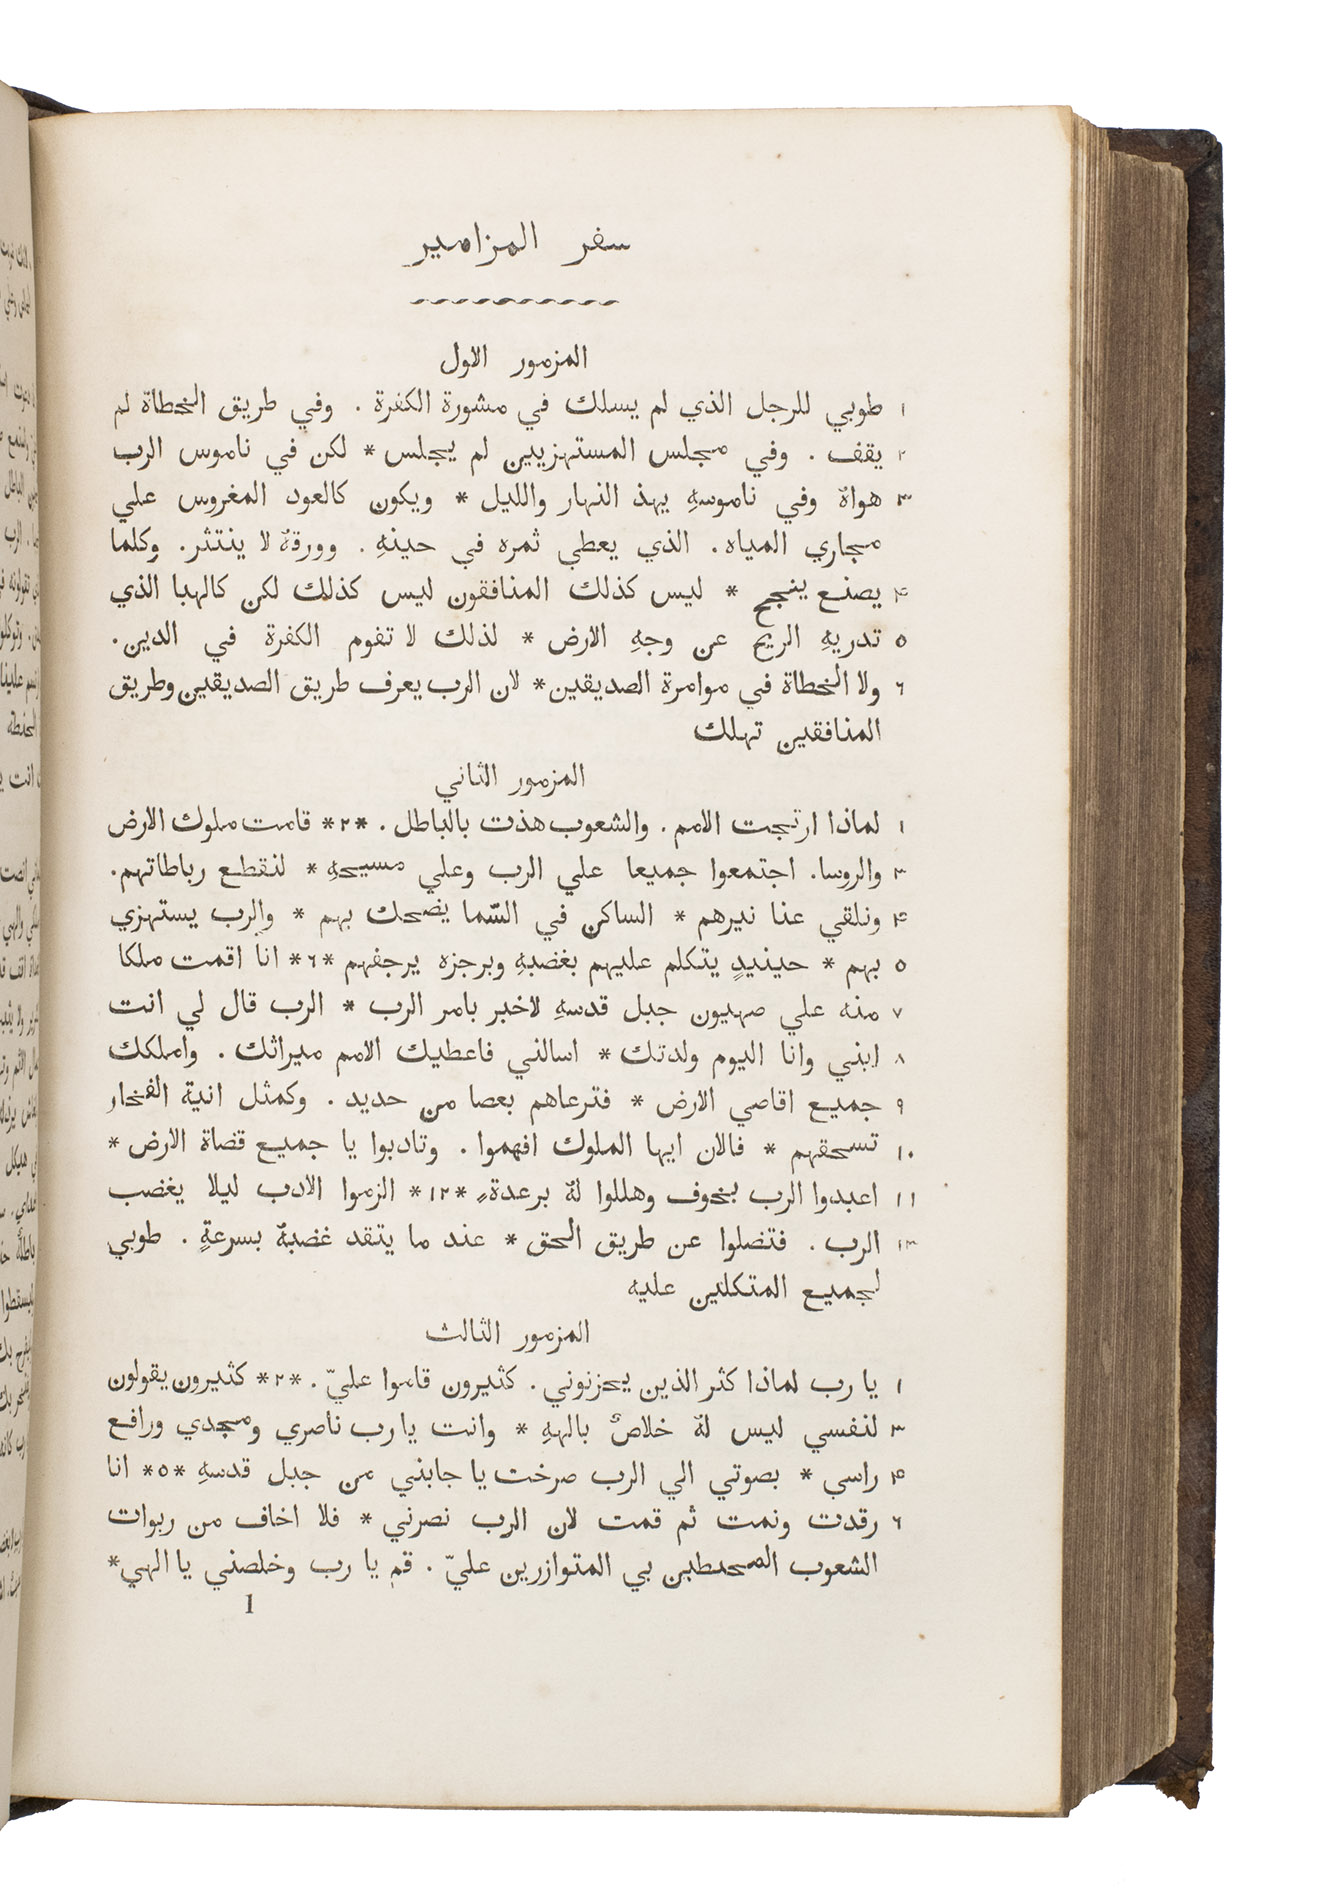 سفر المزامير
المزمور الاول
١ طوبي للرجل الذي لم يسلك في مشورة الكفرة . وفي طريق الخطاة لم
٢ يقف . وفي مجلس المستهزيين لم يجلس * لكن في ناموس الرب
٣ هواهُ وفي ناموسهِ يهذ النهار والليل * ويكون كالعود المغروس علي
مجاري المياه. الذي يعطي ثمره في حينهِ . وورقهُ لا ينتثر. وكلما
۴ يصنع ينجح * ليس كذلك المنافقون ليس كذلك لكن كالهبا الذي
٥ تدريهِ الريح عن وجهِ الارض * لذلك لا تقوم الكفرة في الدين.
٦ ولا الخطاة في موامرة الصديقين* لان الرب يعرف طريق الصديقين وطريق
المنافقين تهلك
المزمور الثاني
١ لماذا ارتجت الامم . والشعوب هذت بالباطل . *٢* قامت ملوك الارض
٣ والروسا. اجتمعوا جميعا علي الرب وعلي مسيحهِ * لنقطع رباطاتهم.
۴ ونلقي عنا نيرهم * الساكن في السّما يضحك بهم * والرب يستهزي
٥ بهم * حينيدٍ يتكلم عليهم بغضبهِ وبرجزه يرجفهم *٦* انا اقمت ملكا
٧ منه علي صهيون جبل قدسهِ لاخبر بامر الرب * الرب قال لي انت
٨ ابني وانا اليوم ولدتك * اسالني فاعطيك الامم ميراثك . واملكك
٩ جميع اقاصي الارض * فترعاهم بعصا من حديد . وكمثل انية الفخار
١٠ تسحقهم * فالان ايها الملوك افهموا . وتادبوا يا جميع قضاة الارض *
١١ اعبدوا الرب بخوف وهللوا لهُ برعدةٍ *١٢* الزموا الادب ليلا يغضب
١٣ الرب . فتضلوا عن طريق الحق * عند ما يتقد غضبهُ بسرعةٍ . طوبي
لجميع المتكلين عليه
المزمور الثالث
١ يا رب لماذا كثر الذين يحزنوني. كثيرون قاموا عليّ . *٢* كثيرون يقولون
٣ لنفسي ليس لهُ خلاصٌ بالههِ * وانت يا رب ناصري ومجدي ورافع
۴ راسي * بصوتي الي الرب صرخت يا جابني من جبل قدسهِ *٥* انا
٦ رقدت ونمت ثم قمت لان الرب نصرني * فلا اخاف من ربوات
الشعوب المحيطين بي المتوازرين عليّ . قم يا رب وخلصني يا الهي*
1